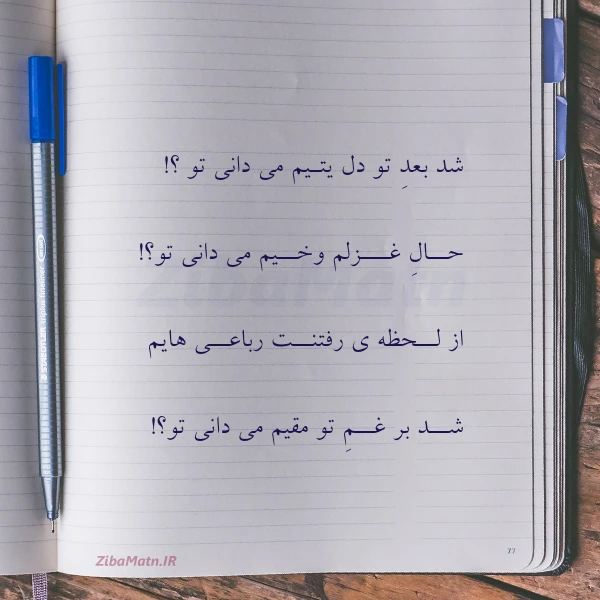 شد بعدِ تو دل یتیم می دانی تو ؟!
حالِ غزلم وخیم می دانی تو؟!
از لحظه ی رفتنت رباعی هایم
شد بر غمِ تو مقیم می دانی تو؟!
ZibaMatn.IR